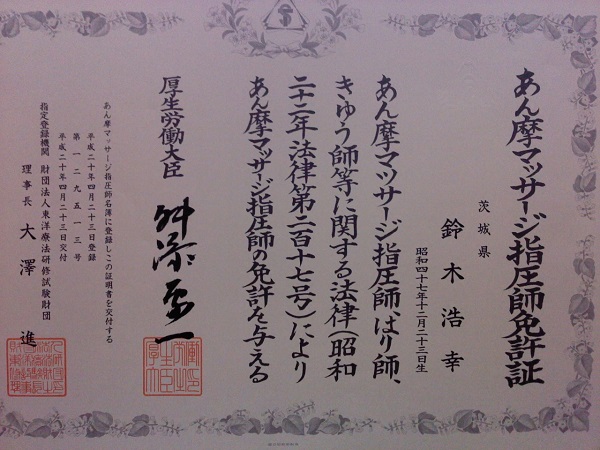 あん摩マッサージ指圧師免許証
茨城県
鈴木浩幸
昭和四十七年十二月二十三日生
あん摩マツサージ指圧師、はり師、
きゆう師等に関する法律(昭和
二十二年法律第二百十七号)により
あん摩マッサージ指圧師の免許を与える
厚生労働大臣
舛添要一
あん摩マッサージ指圧師名簿に登録しこの証明書を交付する
平成二十年四月二十三日登録
第一二九五一三号
平成二十年四月二十三日交付
指定登録機関 財団法人東洋療法研修試験財団
理事長 大澤進